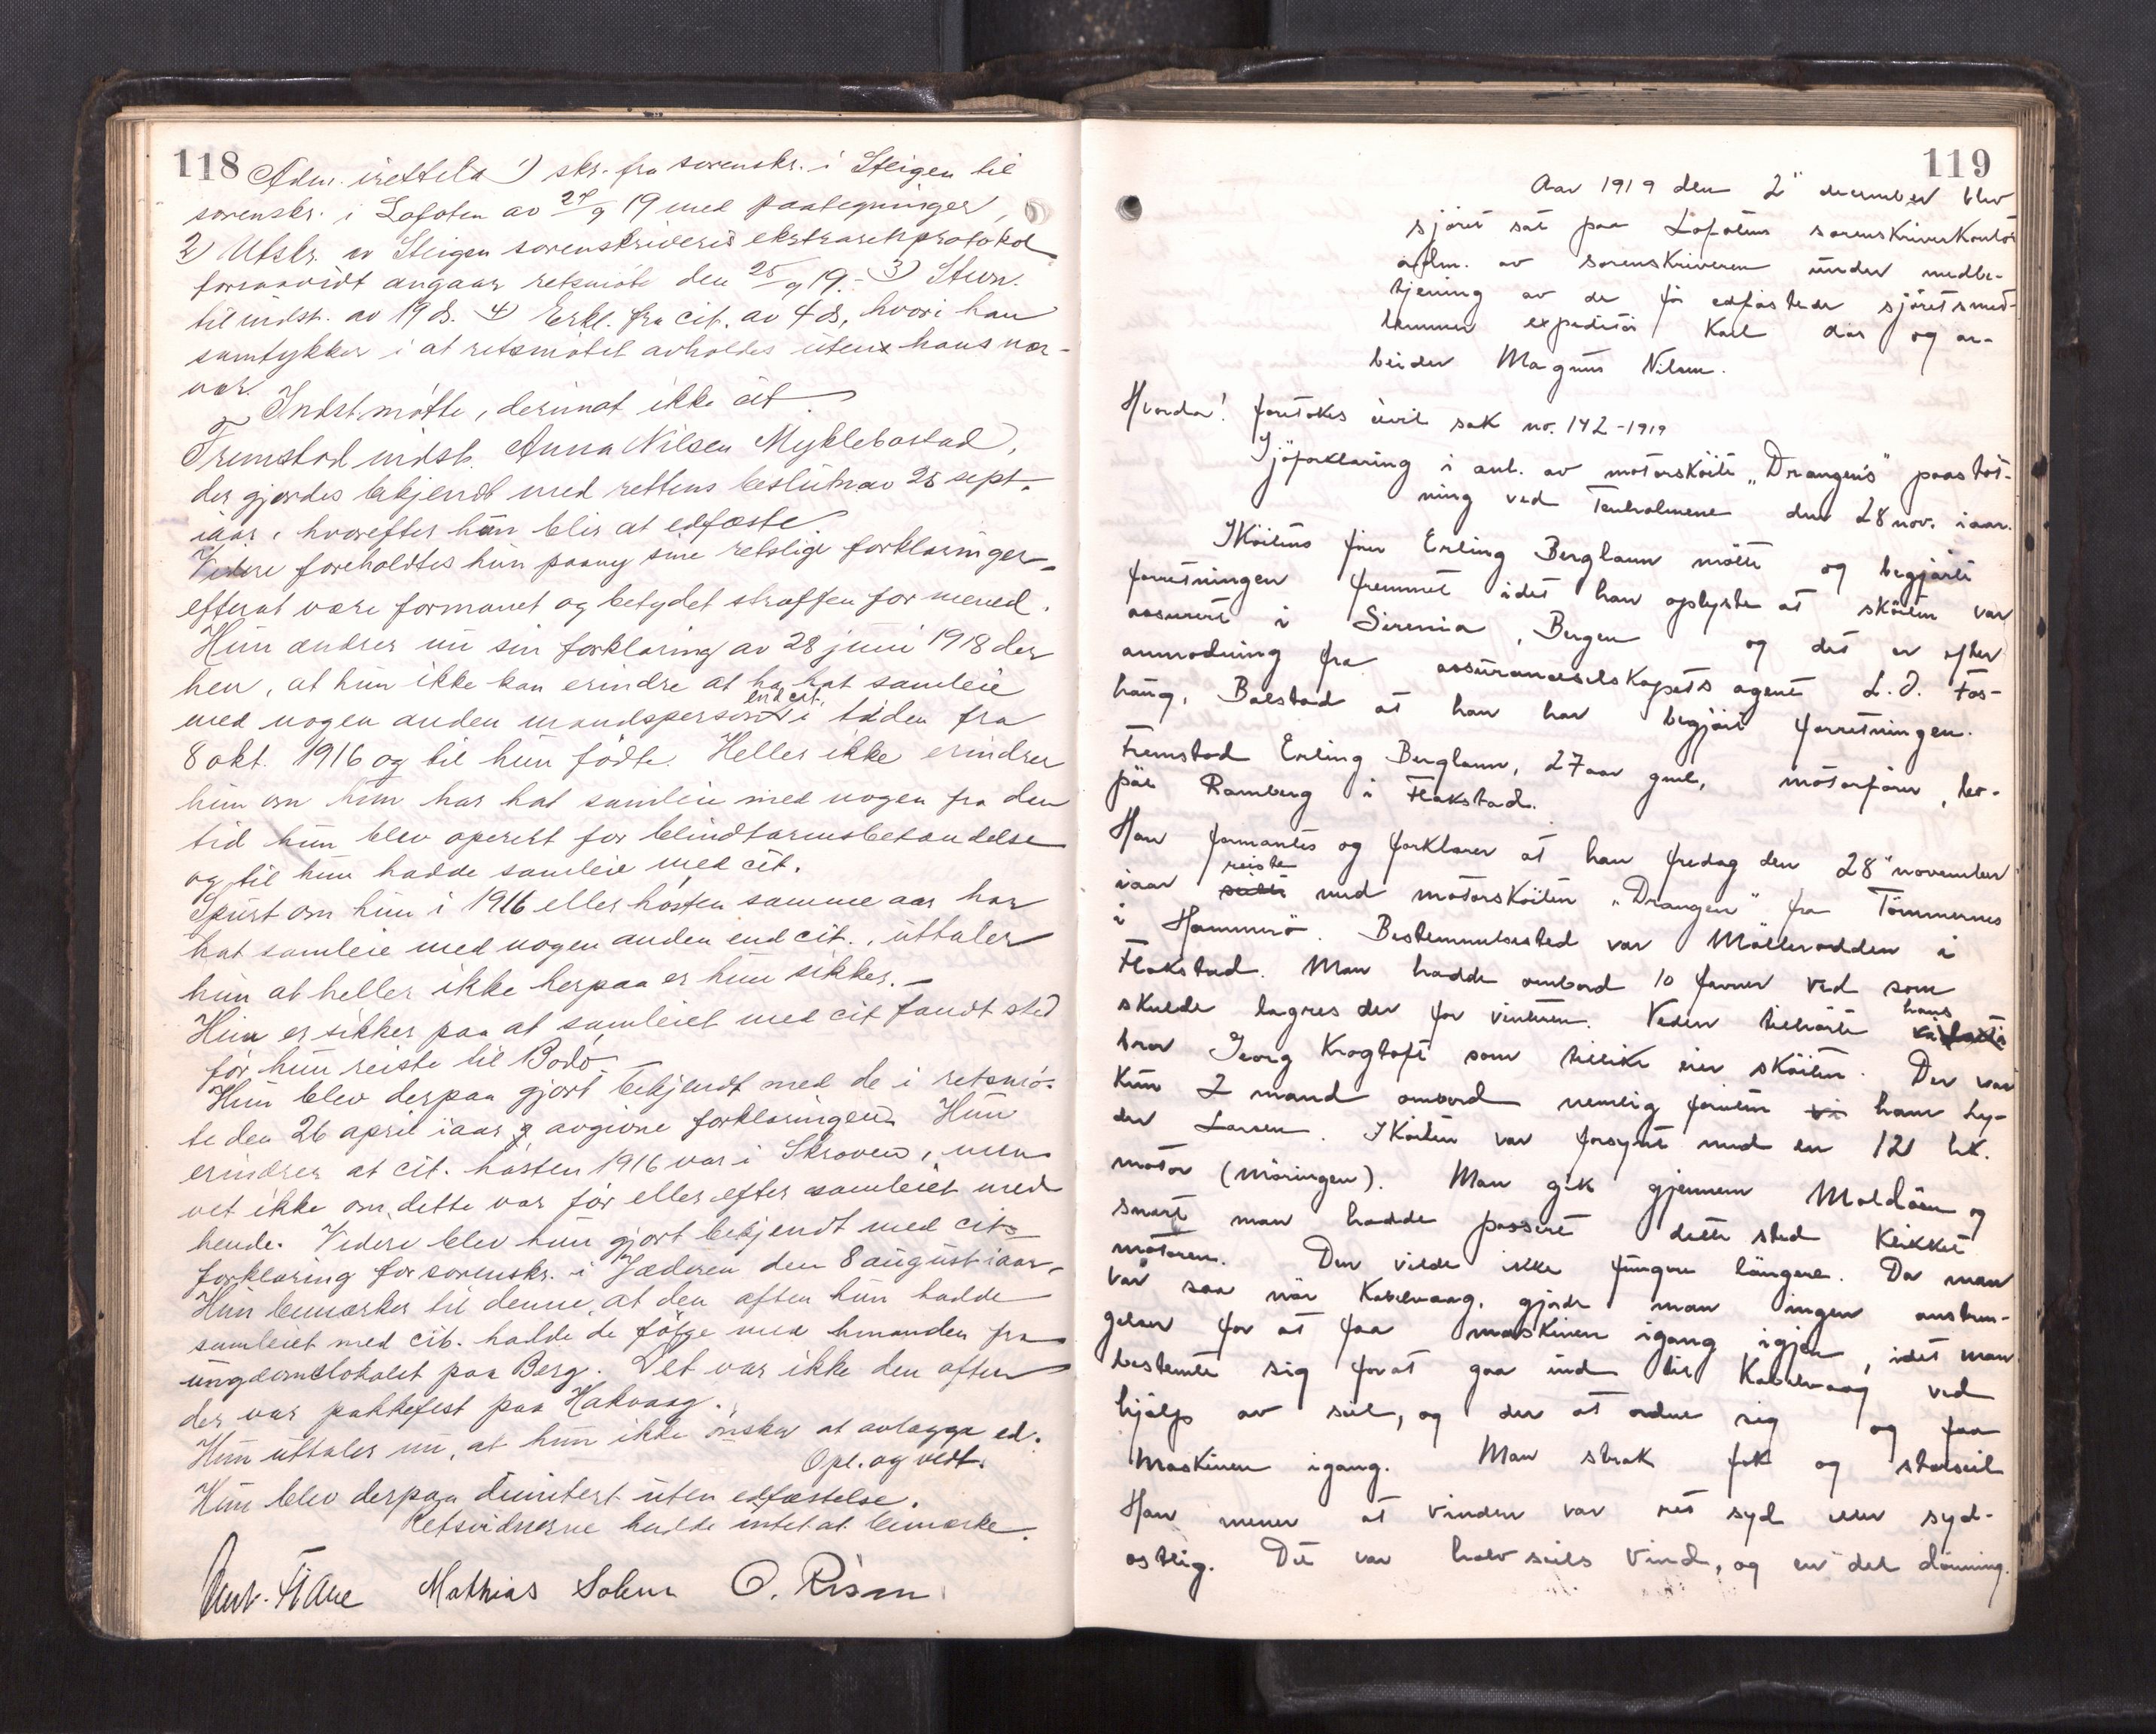 118
Adm. irettela 1) skr. fra sorenskr. i Steigen til
sorenskr. i Lofoten av 27/9 19 med paategninger,
2) Utskr. av Steigen sorenskriveris ekstraretsprotokol
forsaavidt angaar retsmöte den 25/9 19. - 3) Stevn.
til indst. av 19 ds. 4) Erkl. fra cit. av 4 ds, hvori han
samtykker i at retsmötet avholdes uten hans nær-
vær.
Indst. mötte, derimot ikke cit.
Fremstod indst. Anna Nilsen Myklebostad,
der gjordes bekjendt med rettens beslutn. av 25 sept.
iaar, hvorefter hun blir at edfæste.
Videre foreholdtes hun paany sine retslige forklaringer
efterat være formanet og betydet straffen for mened.
Hun ændrer nu sin forklaring av 28 juni 1918 der
hen, at hun ikke kan erindre at ha hat samleie
med nogen anden mandsperson end cit. i tiden fra
8 okt. 1916 og til hun födte. Heller ikke erindrer
hun om hun har hat samleie med nogen fra den
tid hun blev operert for blindtarmsbetændelse
og til hun hadde samleie med cit.
Spurt om hun i 1916 eller hösten samme aar har
hat samleie med nogen anden end cit., uttaler
hun at heller ikke herpaa er hun sikker. -
Hun er sikker paa at samleiet med cit fandt sted
för hun reiste til Bodö. -
Hun blev derpaa gjort bekjendt med de i retsmö-
te den 26 april iaar avgivne forklaringer. Hun
erindrer at cit. hösten 1916 var i Skroven, men
vet ikke om dette var för eller efter samleiet med
hende. Videre blev hun gjort bekjendt med cits
forklaring for sorenskr. i Jæderen den 8 august iaar.
Hun bemerker til denne, at den aften hun hadde
samleiet med cit. hadde de fölge med hinanden fra
ungdomslokalet paa Berg. Det var ikke den aften
der var pakkefest paa Hakvaag.
Hun uttaler nu, at hun ikke önsker at avlægge ed.
Opl. og vedt.
Hun blev derpaa dimitert uten edfæstelse.
Retsvidnerne hadde intet at bemerke.
Mathias Solem O. Risan
119
Aar 1919 den 2" december blev
sjöret sat paa Lofotens sorenskriverkontor
adm. av sorenskriveren under medbe-
tjening av de för edfæstede sjöretsmed-
lemmer expeditör Karl Aas og ar-
beider Magnus Nilsen.
Hvorda! foretokes civil sak no. 142-1919
Sjöforklaring i anl. av motorsköite "Drangen's" paastöt-
ning ved Tenholmene den 28 nov. iaar.
Sköitens förer Erling Berglann mötte og begjærte
forretningen fremmet idet han oplyste at sköiten var
assurert i Sirenia, Bergen og det er efter
anmodning fra assuranceselskapets agent L. J. Fos-
haug, Balstad at han har begjært forretningen.
Fremstod Erling Berglann, 27 aar gml, motorförer, bo-
pæl Ramberg i Flakstad.
Han formantes og forklarer at han fredag den 28" november
iaar reiste med motorsköiten "Drangen" fra Tömmernes
i Hammerö. Bestemmelsessted var Mölleroddden i
Flakstad. Man hadde ombord 10 favner ved som
skulde lagres der for vinteren. Veden tilhörte hans
bror Georg Krogtoft som tillike eier sköiten. Der var
kun 2 mand ombord nemlig foruten ham Ly-
der Larsen. Sköiten var forsynt med en 12 hk.
motor (Möringen). Man gik gjennem Moldören og
snart man hadde passert dette sted klikket
motoren. Den vilde ikke fungere længere. Da man
var saa nær Kabelvaag, gjorde man ingen anstren-
gelser for at faa maskinen igang igjen, idet man
bestemte sig for at gaa ind til Kabelvaag ved
hjælp av seil, og der at ordne sig og faa
maskinen igang. Man strak fok og storseil
Han mener at vinden var ret syd eller syd-
ostlig. Det var halv seils vind, og en del dönning.